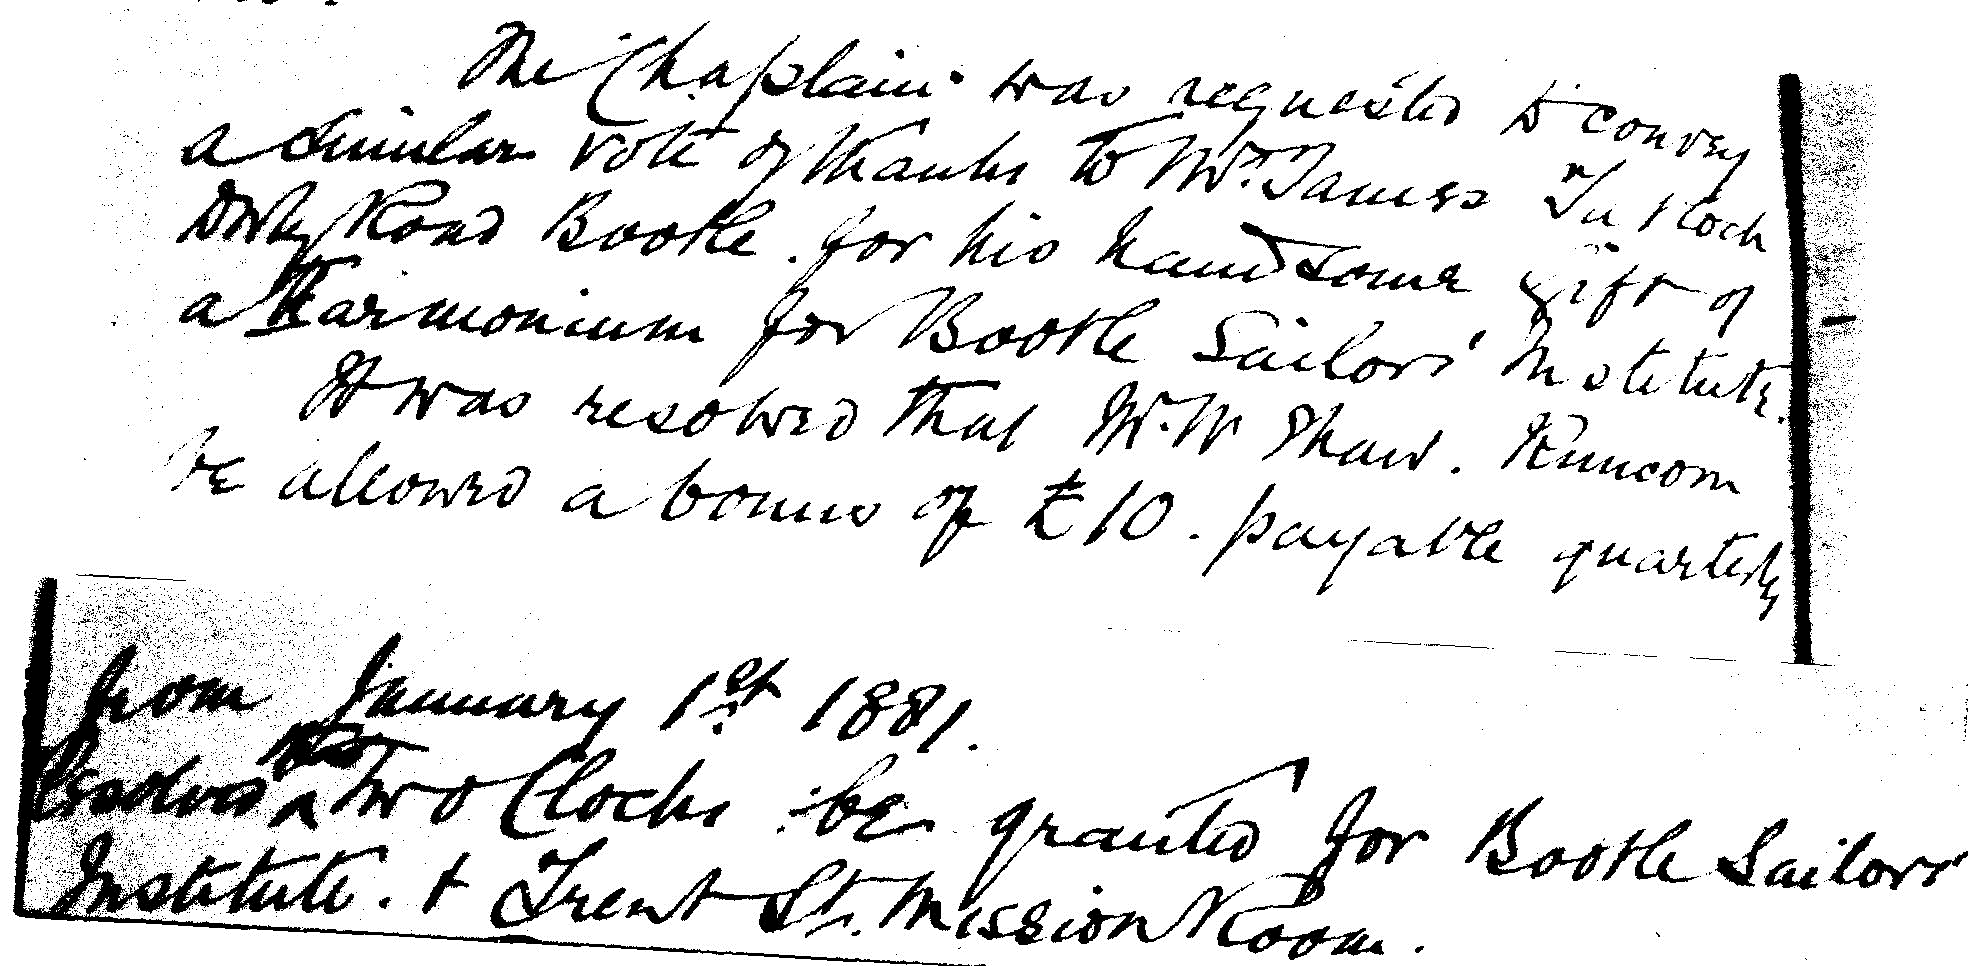 The Chaplain was requested to convey
a similar vote of thanks to Mr. James Tulloch
Derby Road Bootle. for his handsome gift of
a Harmonium for Bootle Sailors' Institute.
It was resolved that Mr. W Shaw. Runcorn
be allowed a bonus of £10. payable quarterly
from January 1st. 1881.
Resolved that two Clocks be granted for Bootle Sailors'
Institute. & Trent St. Mission Room.